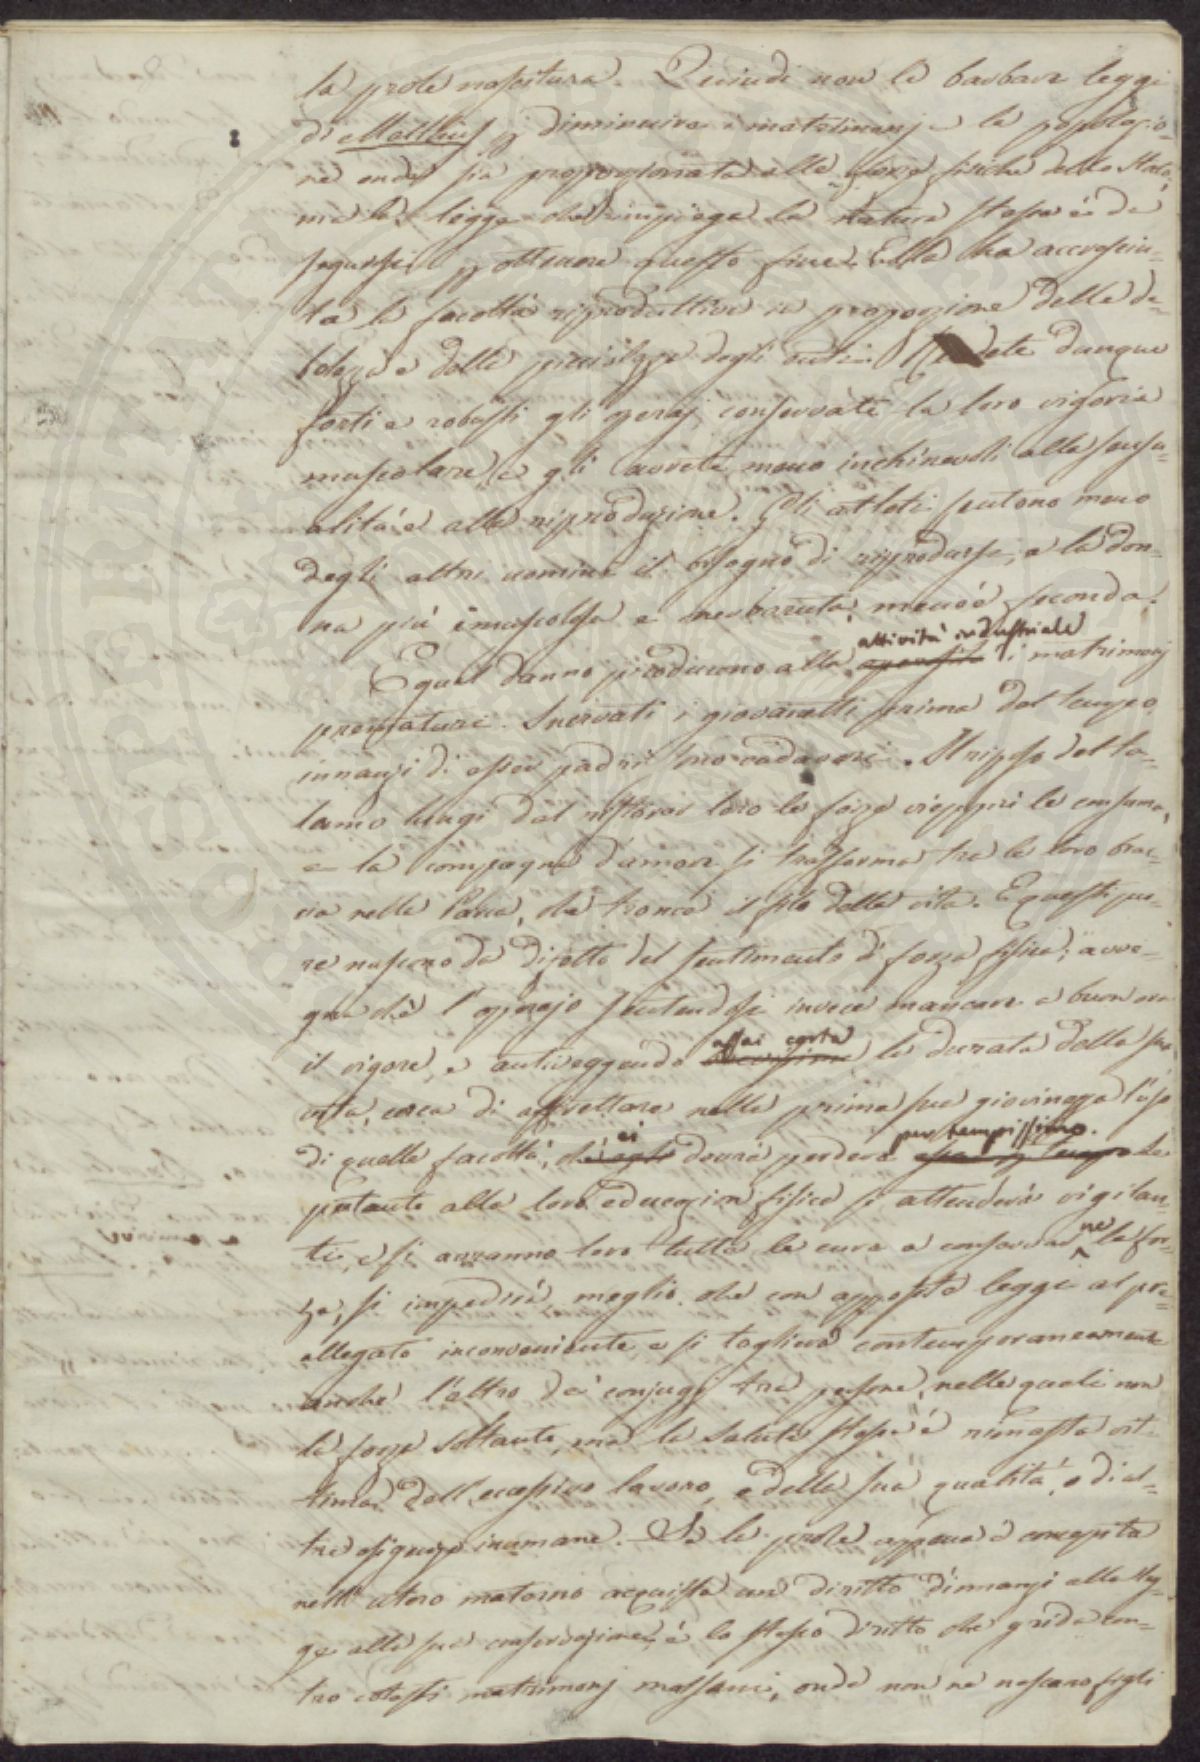 la prole nascitura. Quindi non le barbare leggi
di Malthus p diminuire i matrimonj e la popolazio-
ne onde sia proporzionata alle forze fisiche dello Stato,
ma la legge che impiega la natura stessa è da
seguirsi p ottenere questo fine. Ella ha accresciu-
ta la facoltà riproduttiva in proporzione della de-
bolezza e della piccolezza degli enti. Rendete dunque
forti e robusti gli operaj, conservate la loro vigoria
muscolare, e gli avrete meno inchinevoli alla sensu-
alità e alla riproduzione. Gli atleti sentono meno
degli altri uomini il bisogno di riprodursi, e la don-
na più muscolosa e nerboruta, men è feconda.
attività industriale
E qual danno producono alla i matrimonj
prematuri. Snervati i giovanetti prima del tempo
innanzi di esser padri son cadaveri. Il riposo del ta-
lamo lungi dal ristorar loro le forze vieppiù le consuma,
e la compagna d'amore si trasforma tra le loro brac-
cia nella Parca, che tronca il filo della vita. E questi pu-
re nascono da difetto del sentimento di forza fisica; avve-
gna chè l'operajo sentendosi invece mancare a buon ora
assai corta
il vigore, e antiveggendo la durata della sua
vita, cerca di affrettare nella prima sua giovinezza l'uso
ei per tempissimo.
di quella facoltà, che egli dovrà perdere Se
pertanto alla loro educazion fisica si attenderà vigilan-
ti, e si avranno loro tutte le cure a conservarne la for-
za, si impedirà meglio che con apposite leggi al pre-
allegato inconveniente, e si toglierà contemporaneamente
anche l'altro de' conjugj tra persone, nelle quali non
la forza soltanto, ma la salute stessa è rimasta vit-
tima dell'eccessivo lavoro, e della sua qualità, e di al-
tre esigenze inumane. Se la prole appena è concepita
nell'utero materno acquista un diritto dinnanzi alla leg-
ge alla sua conservazione, è lo stesso diritto che grida con-
tro cotesti matrimonj malsani, onde non ne nascano figli